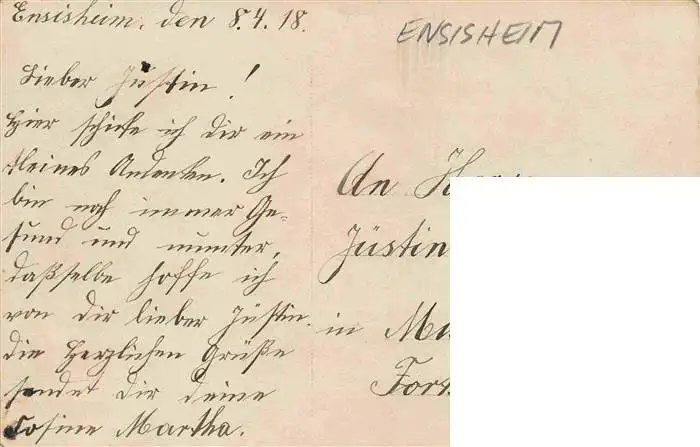 Ensisheim, den 8.4.18.
ENSISHEIM
Lieber Jüstin!
Hier schicke ich dir ein
kleines Andenken. Ich
bin noch immer Ge-
sund und munter,
daßselbe hoffe ich
von dir lieber Jüstin.
die Herzlichen Grüße
sendet dir deine
Cosine Martha.
An
Jüstin
in